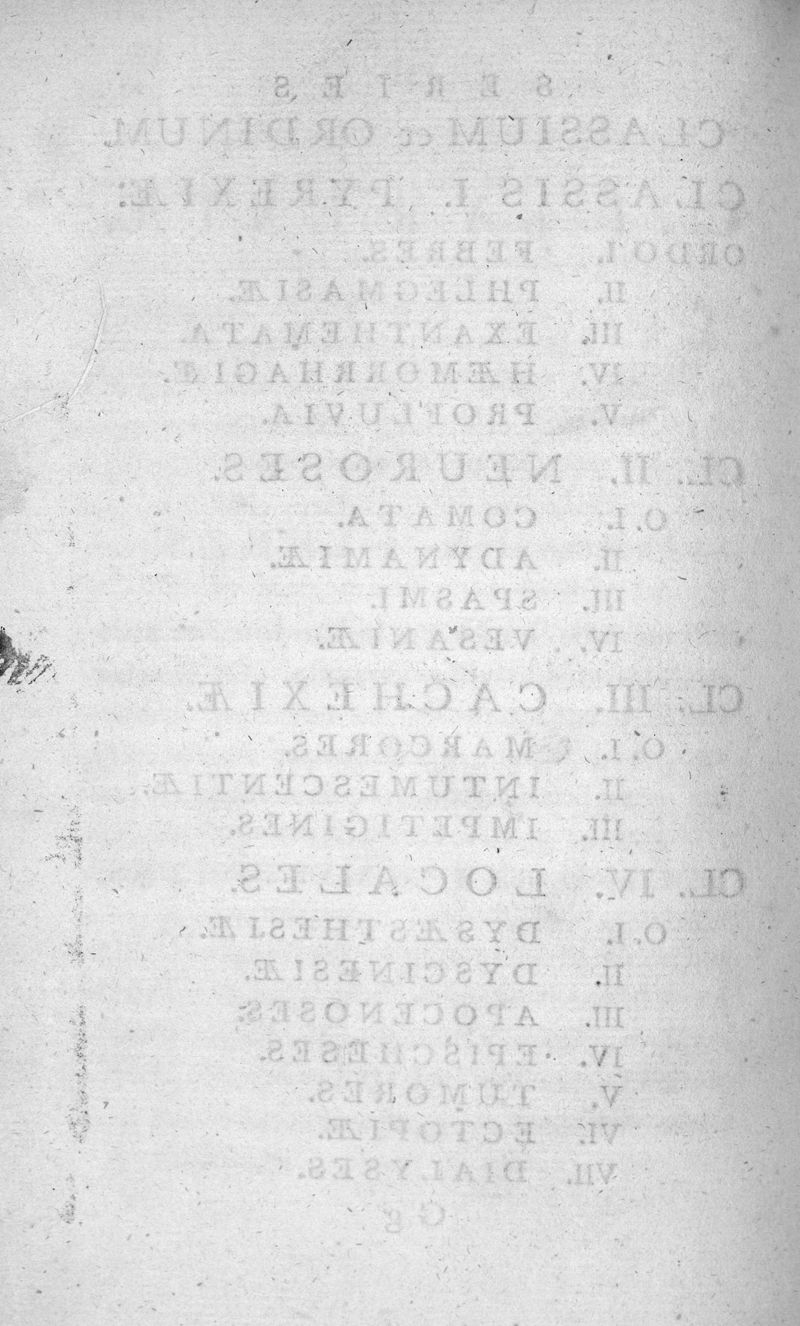 SERIES
CLASSIUM et ORDINUM.
CLASSIS I. PYREXIÆ.
ORDO I. FEBRES.
II. PHLEGMASIÆ.
III. EXANTHEMATA.
IV. HÆMORRHAGIÆ.
V. PROFLUVIA.
CL. II. NEUROSES.
O. I. COMATA.
II. ADYNAMIÆ.
III. SPASMI.
IV. VESANIÆ.
CL. III. CACHEXIÆ.
O. I. MARCORES.
II. INTUMESCENTIÆ.
III. IMPETIGINES.
CL. IV. LOCALES.
O. I. DYSÆSTHESIÆ.
II. DYSCINESIÆ.
III. APOCENOSES.
IV. EPISCHESES.
V. TUMORES.
VI. ECTOPIÆ.
VII. DIALYSES.
G g